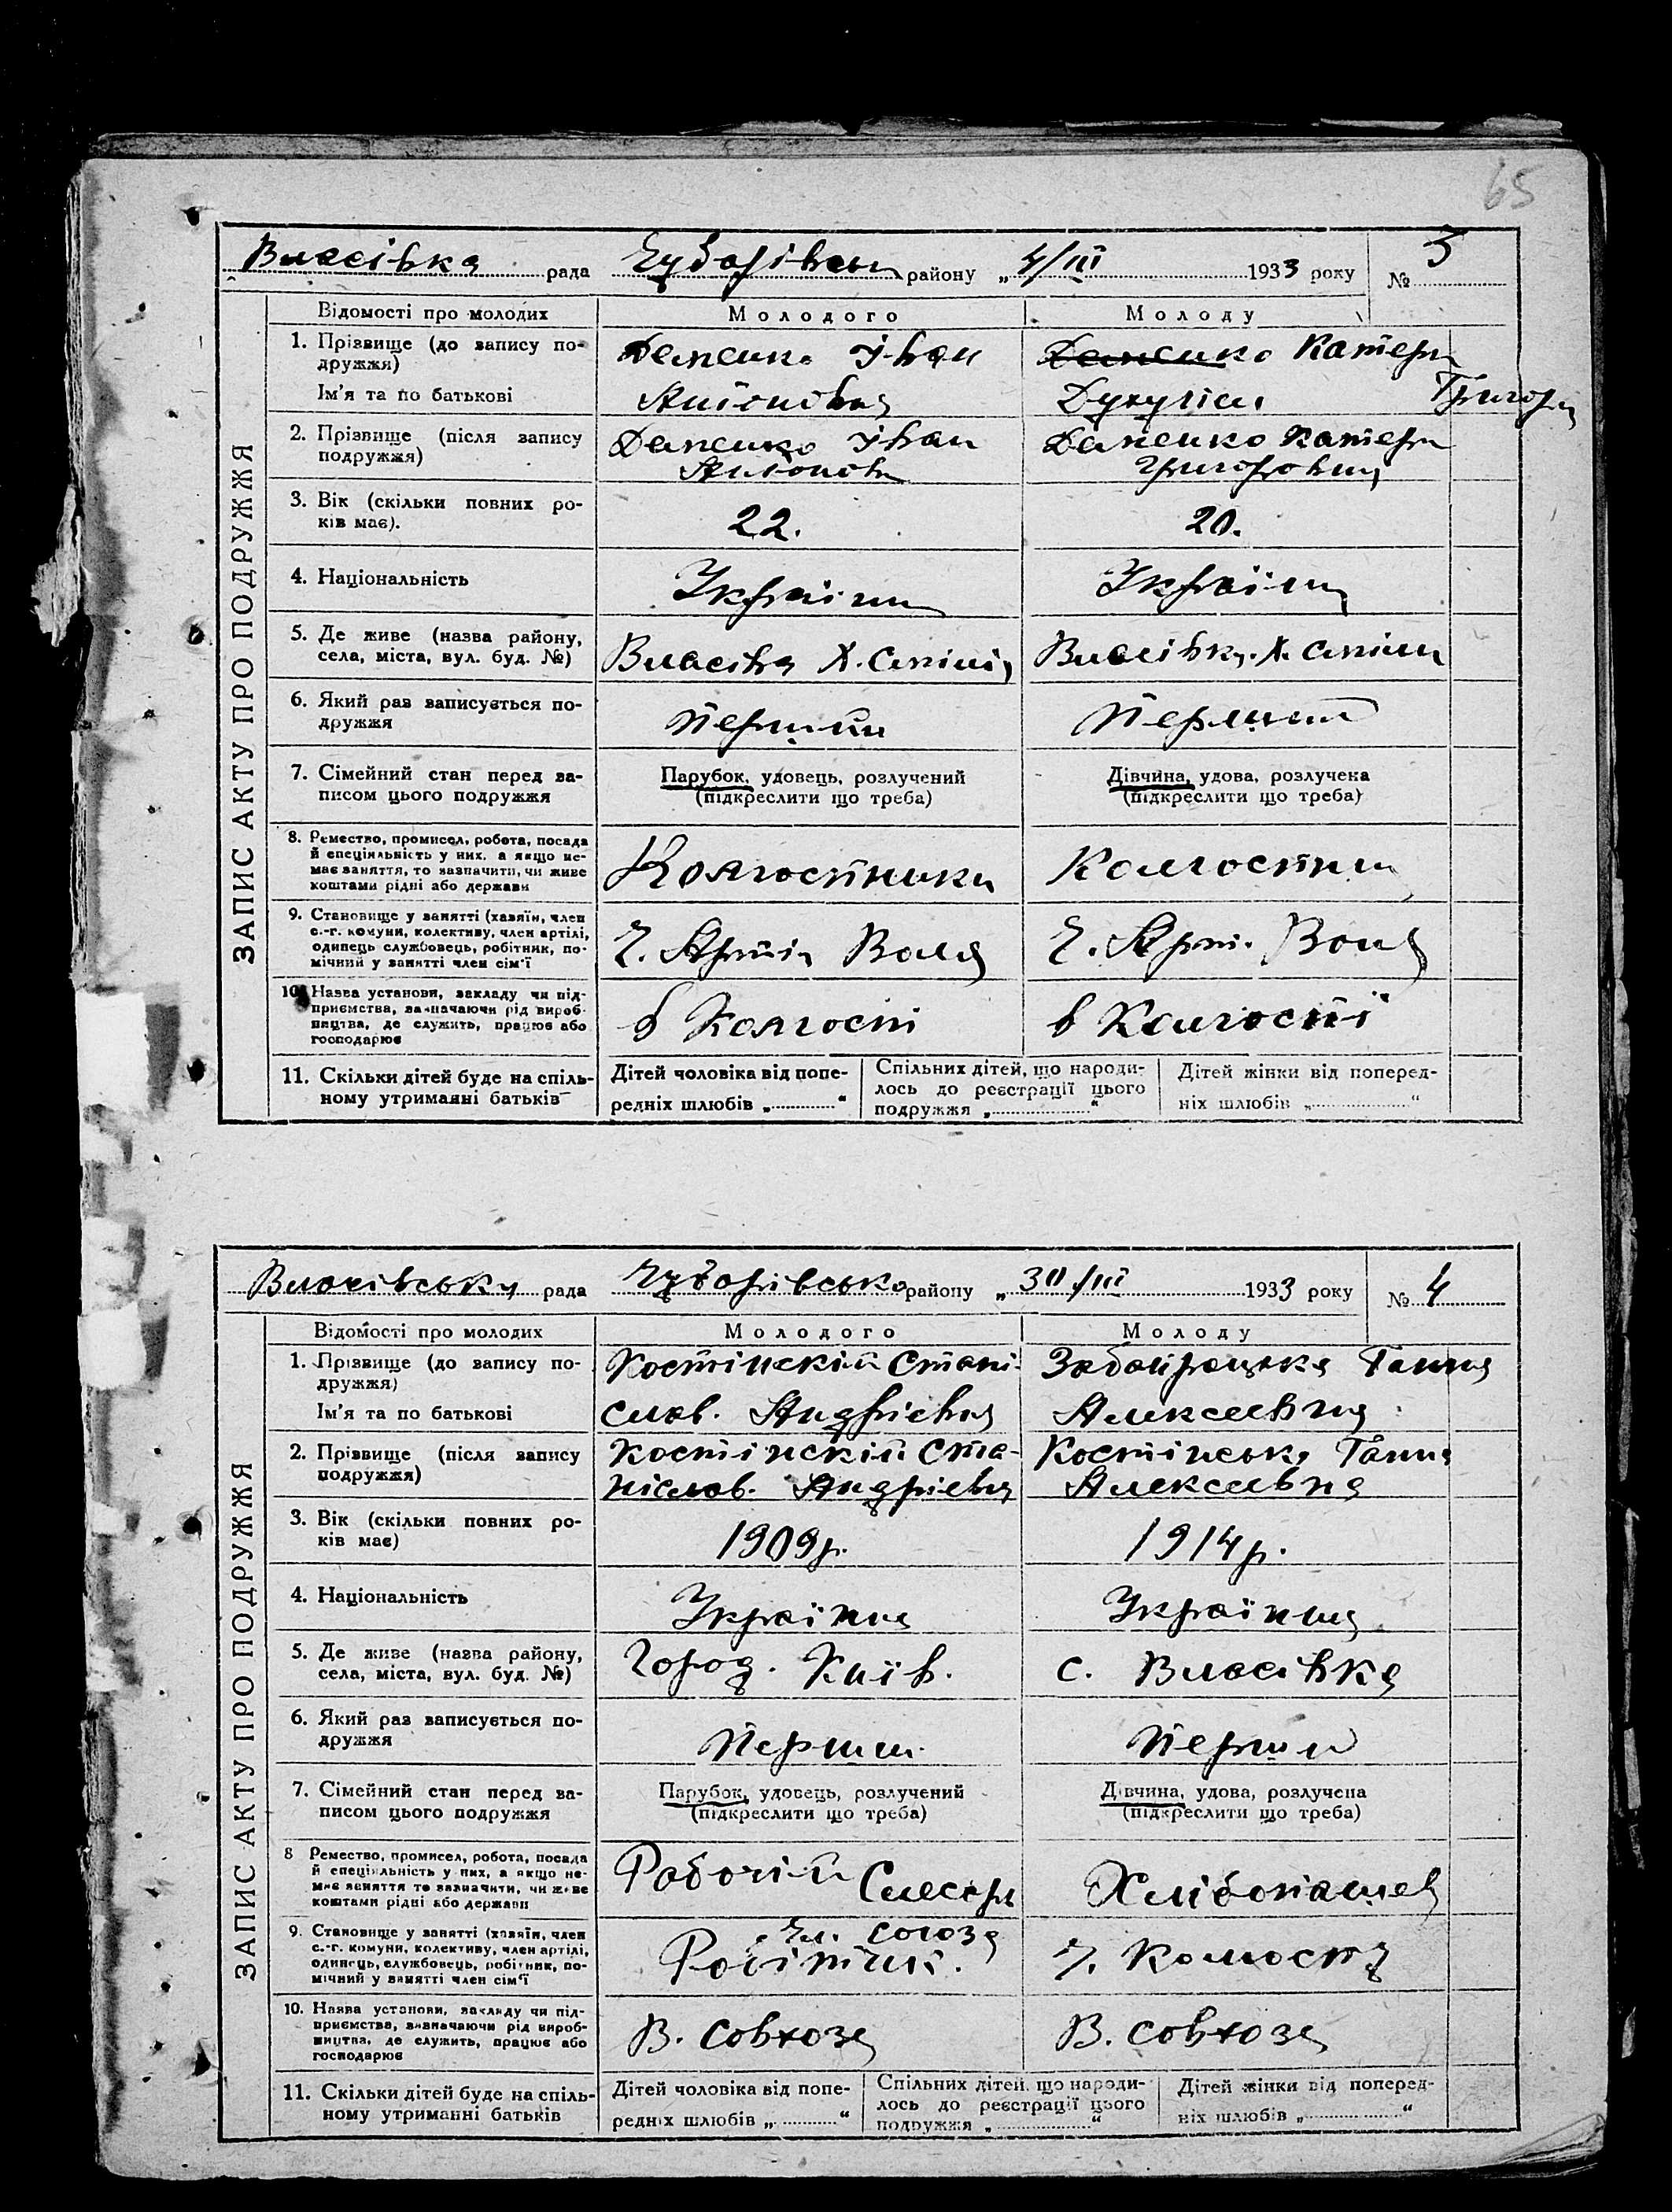 65
Власівка рада Чубарівськ району „ 4/III 1933 року № 3
ЗАПИС АКТУ ПРО ПОДРУЖЖЯ
Відомості про молодих Молодого Молоду
1. Прізвище (до запису по-
дружжя)
Ім'я та по батькові
Іван
Катери
Григори
2. Прізвище (після запису
подружжя)
Іван
Катери
Григоровна
3. Вік (скільки повних ро-
ків має).
22. 20.
4. Національність
Україн Україн
5. Де живе (назва району,
села, міста, вул. буд. №)
6. Який раз записується по-
дружжя
Перший Перший
7. Сімейний стан перед за-
писом цього подружжя
Парубок, удовець, розлучений Дівчина, удова, розлучена
(підкреслити що треба) (підкреслити що треба)
8. Ремество, промисел, робота, посада
й спеціяльність у них, а якщо не-
має заняття, то зазначити, чи живе
коштами рідні або держави
9. Становище у занятті (хазяїн, член
с.-г. комуни, колективу, член артілі,
одинець службовець, робітник, по-
мічний у занятті член сім'ї
Ч. Артіл Воля Ч. Арт. Воля
10. Назва установи, закладу чи під-
приємства, зазначаючи рід вироб-
ництва, де служить, працює або
господарює
в Колгоспі в Колгоспі
11. Скільки дітей буде на спіль-
ному утриманні батьків
Дітей чоловіка від попе-
редніх шлюбів „ “
Спільних дітей, що народи-
лось до реєстрації цього
подружжя „ “
Дітей жінки від поперед-
ніх шлюбів „ “
Власівська рада Чубарівсько району „ 30/III 1933 року № 4
ЗАПИС АКТУ ПРО ПОДРУЖЖЯ
Відомості про молодих Молодого Молоду
1. Прізвище (до запису по-
дружжя)
Ім'я та по батькові
Костінскій Стані-
слав. Андрієвич
Ганна
Алексеевна
2. Прізвище (після запису
подружжя)
Костінскій Ста-
ніслав. Андрієвич
Костінська Ганна
Алексеевна
3. Вік (скільки повних ро-
ків має)
1909р. 1914р.
4. Національність
5. Де живе (назва району,
села, міста, вул. буд. №)
Город. Київ. с. Власівка
6. Який раз записується по-
дружжя
7. Сімейний стан перед за-
писом цього подружжя
Парубок, удовець, розлучений Дівчина, удова, розлучена
(підкреслити що треба) (підкреслити що треба)
8 Ремество, промисел, робота, посада
й спеціяльність у них, а якщо не-
має заняття то зазначити, чи живе
коштами рідні або держави
Рабочій Слесарь
9. Становище у занятті (хазяїн, член
с.-г. комуни, колективу, член артілі,
одинець, службовець, робітник, по-
мічний у занятті член сім'ї
Чл. союза
Робітник.
10. Назва установи, закладу чи під-
приємства, зазначаючи рід вироб-
ництва, де служить, працює або
господарює
В. Совхозе В. Совхозе
11. Скільки дітей буде на спіль-
ному утриманні батьків
Дітей чоловіка від попе-
редніх шлюбів „ “
Спільних дітей, що народи-
лось до реєстрації цього
подружжя „ “
Дітей жінки від поперед-
ніх шлюбів „ “